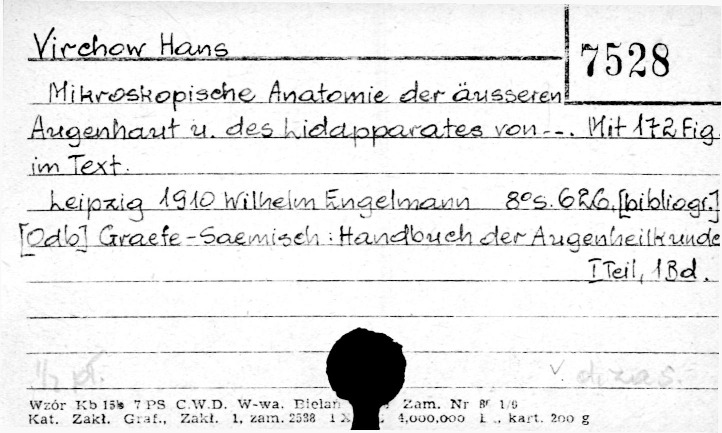 Virchow Hans
7528
Mikroskopische Anatomie der äusseren
Augenhaut u. des Lidapparates von --. Mit 172 Fig.
im Text.
Leipzig 1910 Wilhelm Engelmann 8° s. 626, [bibliogr.]
[Odb] Graefe-Saemisch: Handbuch der Augenheilkunde
I Teil, 1 Bd.
Wzór Kb 15b 7 PS C.W.D. W-wa. Zam. Nr
Kat. Zakł. Graf., Zakł. 1, zam. 2538 4,000,000 kart. 200 g